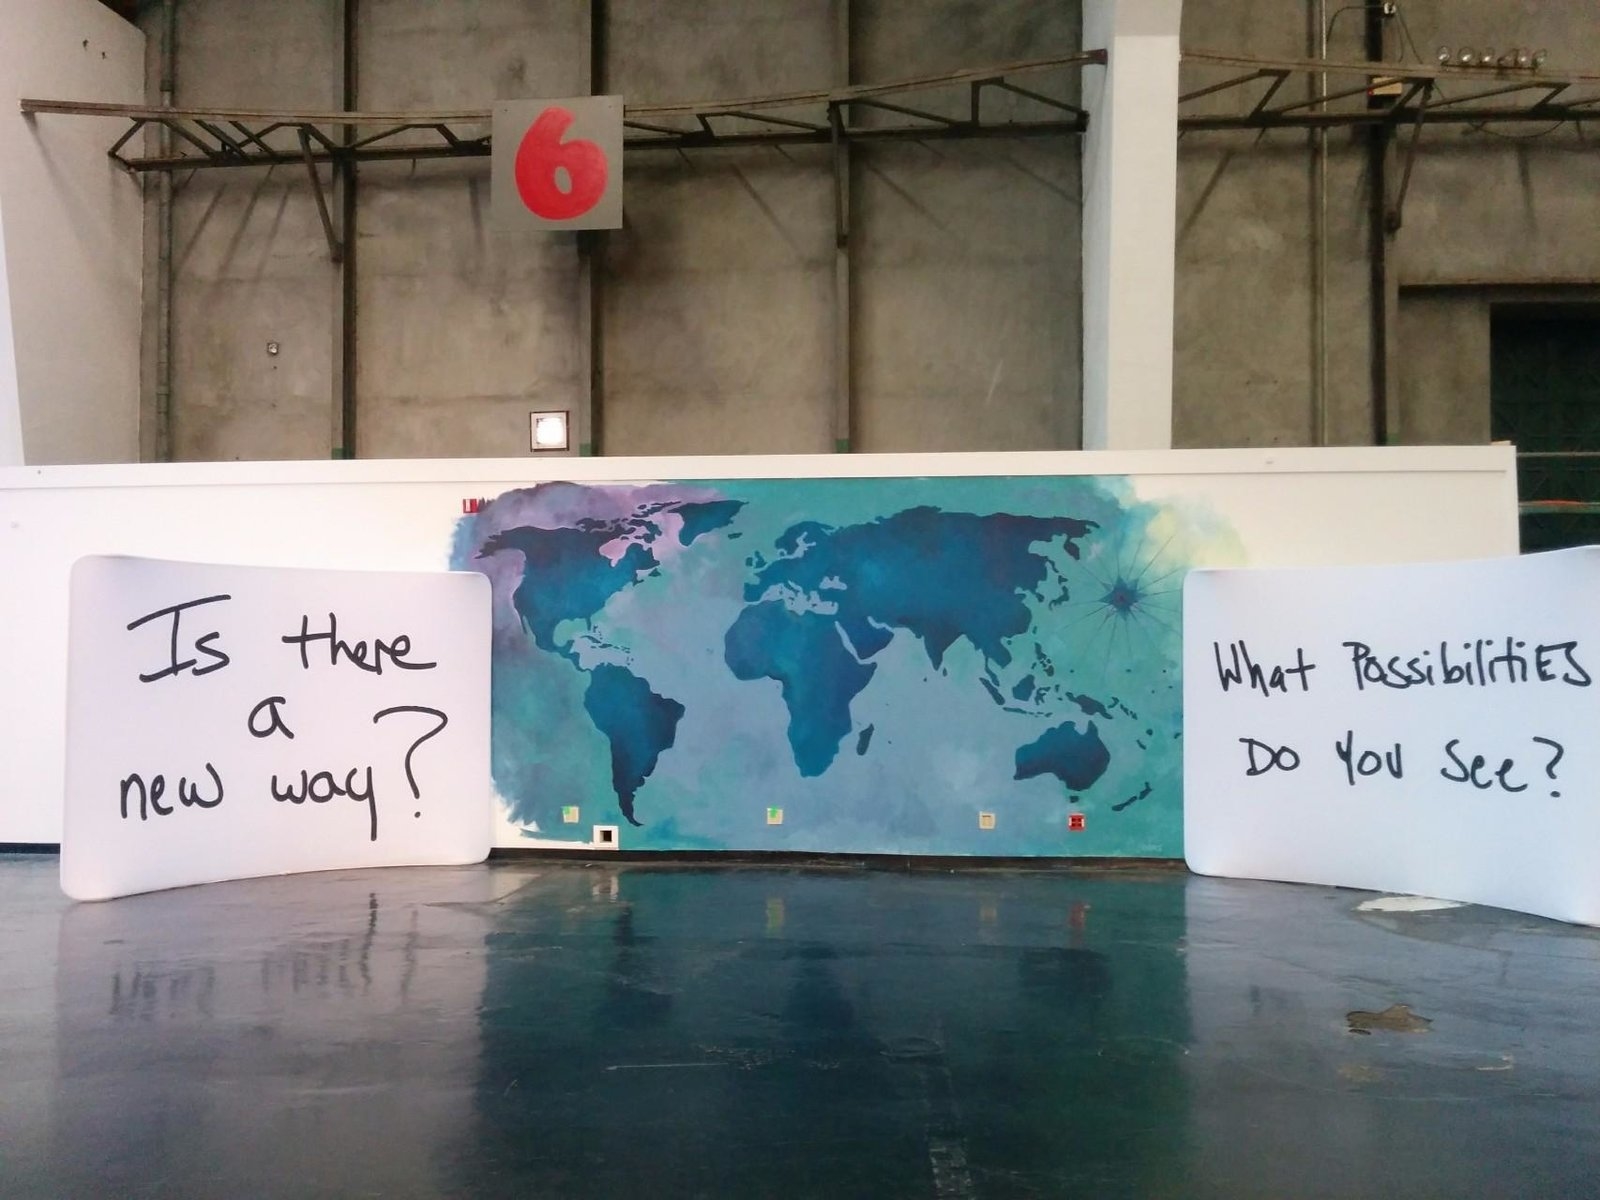 6
Is there
a
new way?
What PossibilitiES
Do You See?